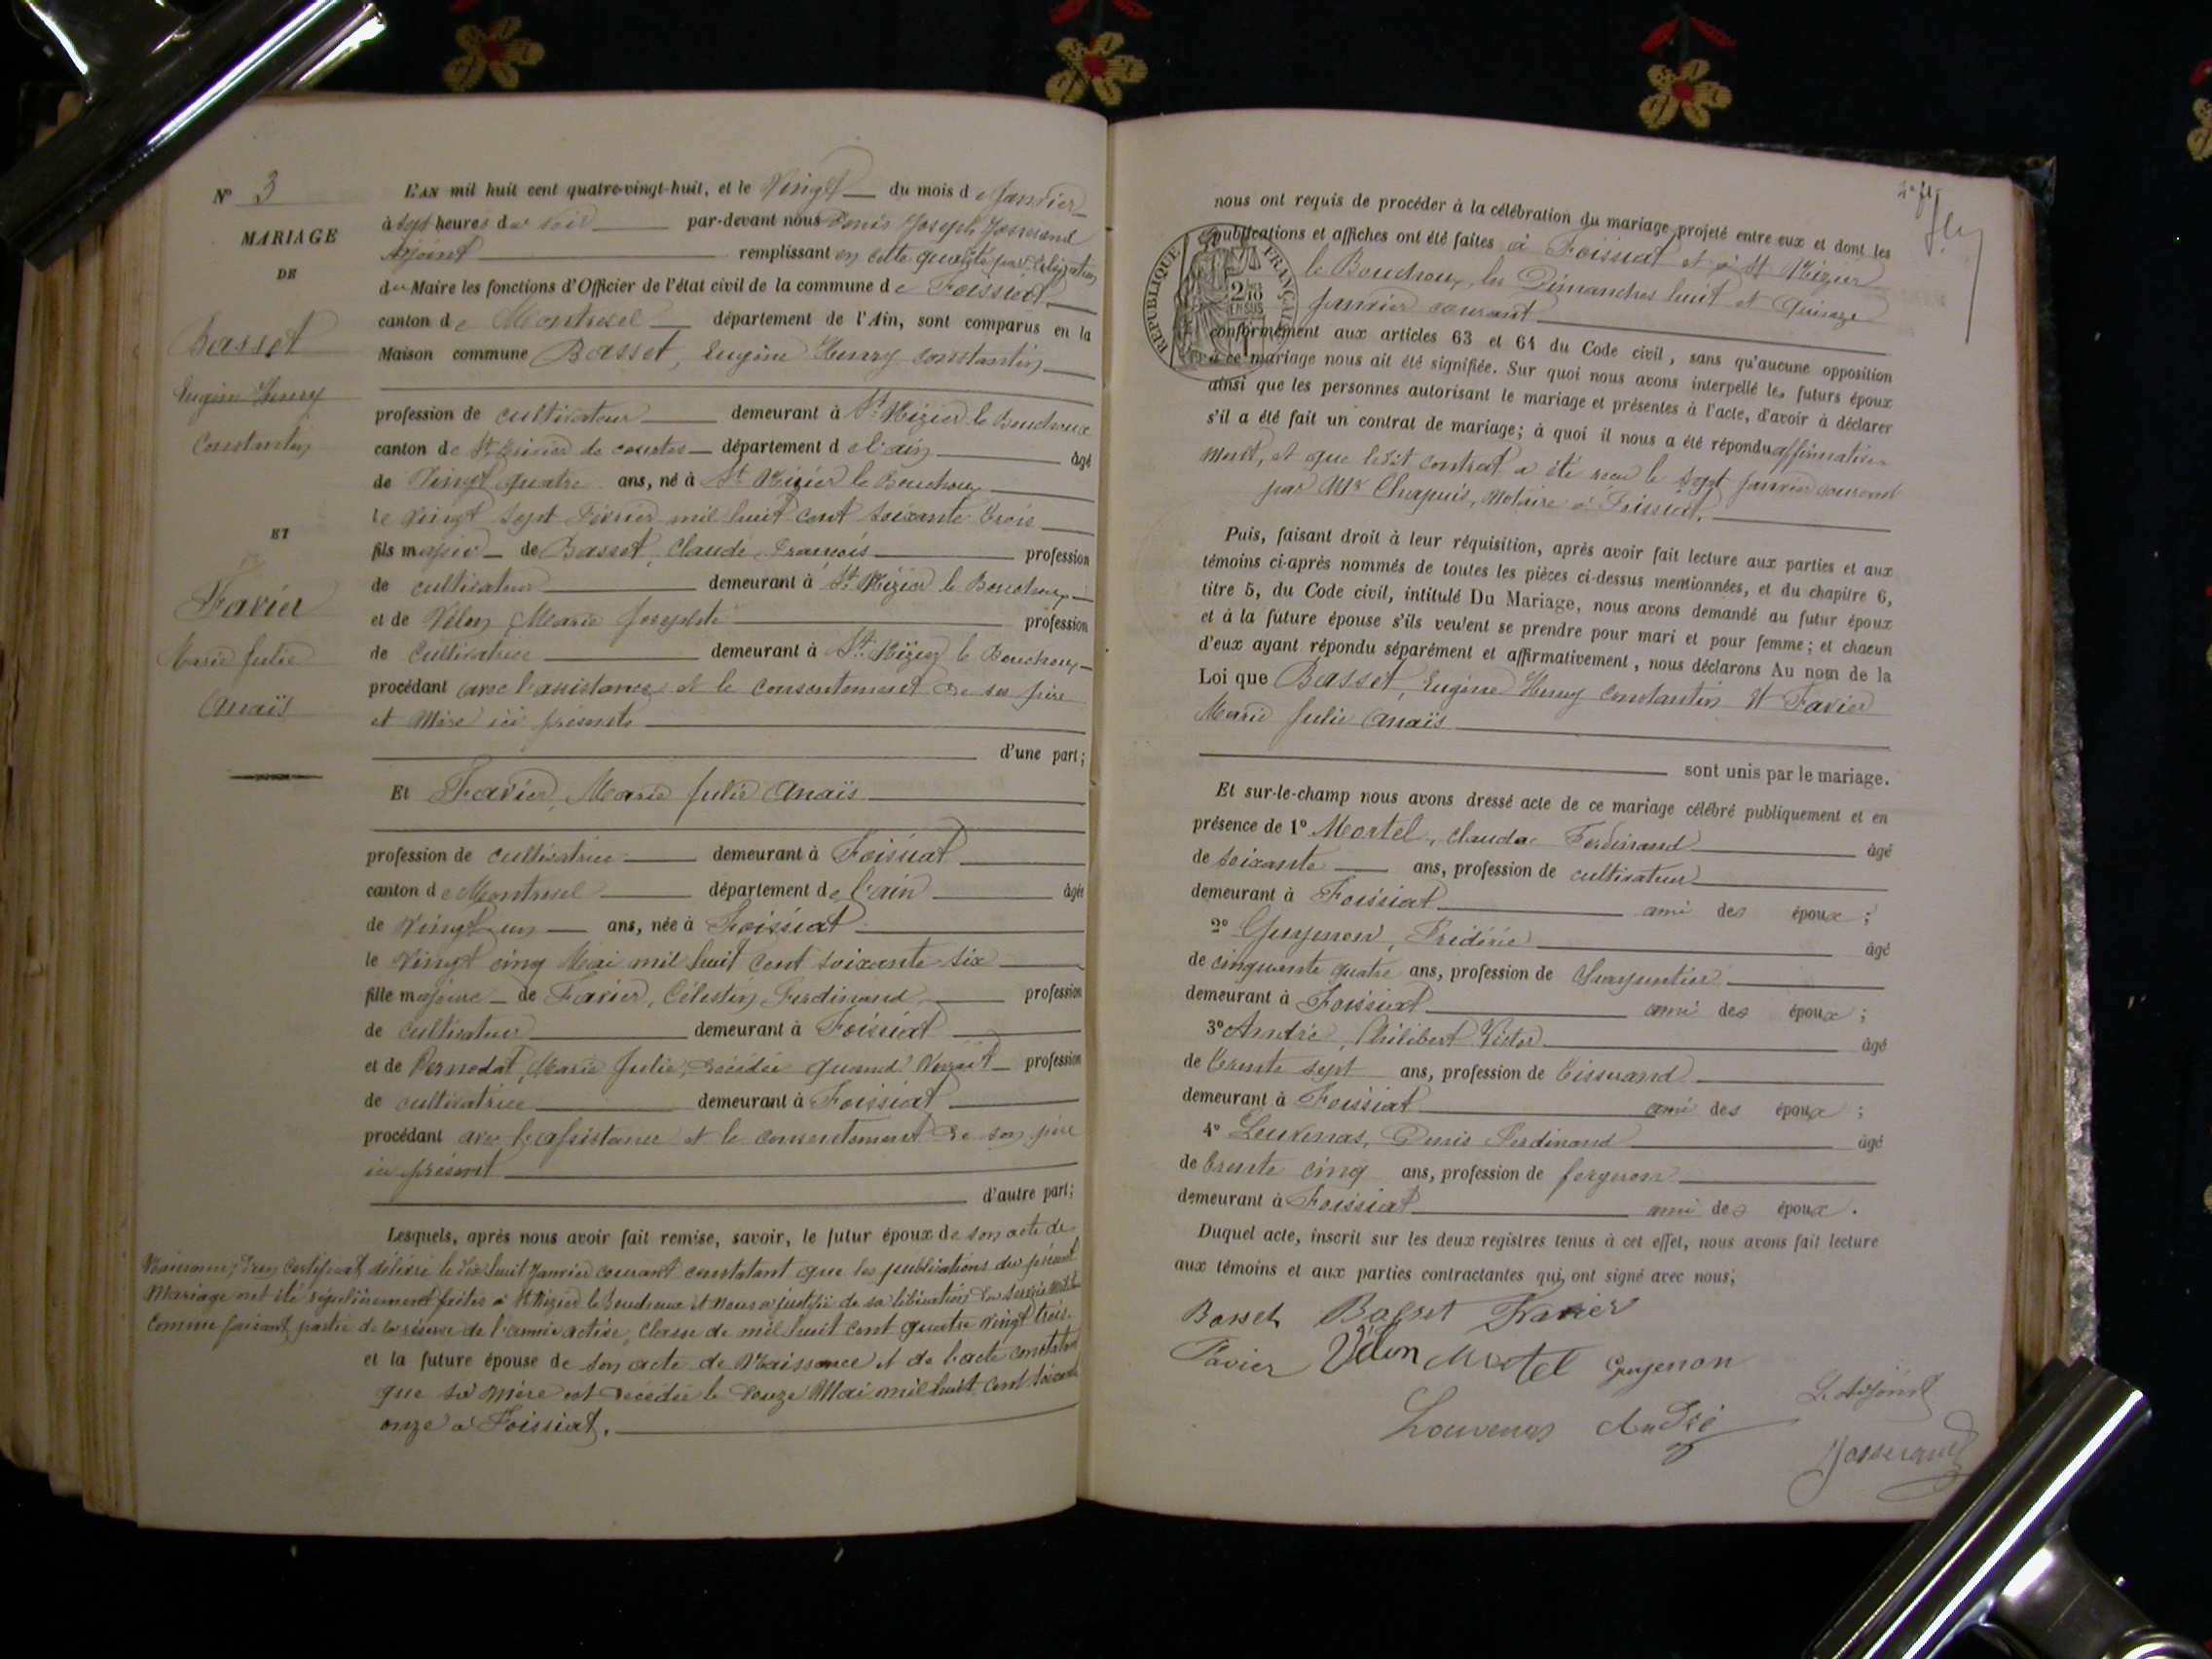 N° 3
MARIAGE
DE
Basset
Eugène Henry
Constantin
ET
Favier
Marie Julie
Anaïs
L'AN mil huit cent quatre-vingt-huit, et le Vingt du mois de Janvier
à sept heures du soir par-devant nous Denis Joseph Josserand
Adjoint remplissant en cette qualité par délégation
du Maire les fonctions d'Officier de l'état civil de la commune de Foissiat
canton de Montrevel département de l'Ain, sont comparus en la
Maison commune Basset, Eugène Henry Constantin
profession de cultivateur demeurant à St Nizier le Bouchoux
canton de St Trivier de courtes département de l'ain âgé
de Vingt quatre ans, né à St Nizier le Bouchoux
le vingt sept Février mil huit cent soixante trois
fils majeur de Basset, Claude François profession
de cultivateur demeurant à St Nizier le Bouchoux
et de Vélon, Marie Josephte profession
de Cultivatrice demeurant à St Nizier le Bouchoux
procédant avec l'assistance et le consentement de ses père
et Mère ici présents
d'une part;
Et Favier, Marie Julie Anaïs
profession de cultivatrice demeurant à Foissiat
canton de Montrevel département de l'ain âgée
de Vingt un ans, née à Foissiat
le Vingt cinq Mai mil huit cent soixante six
fille majeure de Favier, Célestin Ferdinand profession
de cultivateur demeurant à Foissiat
et de Pernodat, Marie Julie, décédée quand vivait profession
de cultivatrice demeurant à Foissiat
procédant avec l'assistance et le consentement de son père
ici présent
d'autre part;
Lesquels, après nous avoir fait remise, savoir, le futur époux de son acte de
Naissance, d'un Certificat délivré le dix huit Janvier courant constatant que les publications du présent
Mariage ont été régulièrement faites à St Nizier le Bouchoux et nous a justifié de sa libération du service
Comme faisant partie de la réserve de l'armée active, Classe de mil huit cent quatre vingt trois.
et la future épouse de son acte de Naissance et de l'acte constatant
que sa mère est décédée le douze Mai mil huit cent soixante
onze à Foissiat.
nous ont requis de procéder à la célébration du mariage projeté entre eux et dont les
publications et affiches ont été faites à Foissiat et à St Nizier
le Bouchoux, les Dimanches huit et Quinze
Janvier courant
RÉPUBLIQUE FRANÇAISE
conformément aux articles 63 et 64 du Code civil, sans qu'aucune opposition
à ce mariage nous ait été signifiée. Sur quoi nous avons interpellé les futurs époux
ainsi que les personnes autorisant le mariage et présentes à l'acte, d'avoir à déclarer
s'il a été fait un contrat de mariage; à quoi il nous a été répondu affirmative-
ment, et que ledit contrat a été reçu le sept Janvier courant
par Mr Chapuis, Notaire à Foissiat.
Puis, faisant droit à leur réquisition, après avoir fait lecture aux parties et aux
témoins ci-après nommés de toutes les pièces ci-dessus mentionnées, et du chapitre 6,
titre 5, du Code civil, intitulé Du Mariage, nous avons demandé au futur époux
et à la future épouse s'ils veulent se prendre pour mari et pour femme; et chacun
d'eux ayant répondu séparément et affirmativement, nous déclarons Au nom de la
Loi que Basset, Eugène Henry Constantin et Favier
Marie Julie Anaïs
sont unis par le mariage.
Et sur-le-champ nous avons dressé acte de ce mariage célébré publiquement et en
présence de 1° Mortel, Claude Ferdinand âgé
de soixante ans, profession de cultivateur
demeurant à Foissiat ami des époux;
2° Guyenon, Frédéric âgé
de cinquante quatre ans, profession de Charpentier
demeurant à Foissiat ami des époux;
3° André, Philibert Victor âgé
de trente sept ans, profession de tisserand
demeurant à Foissiat ami des époux;
4° Louvenas, Denis Ferdinand âgé
de trente cinq ans, profession de forgeron
demeurant à Foissiat ami des époux.
Duquel acte, inscrit sur les deux registres tenus à cet effet, nous avons fait lecture
aux témoins et aux parties contractantes qui ont signé avec nous;
Basset Basset Favier
Favier Vélon Mortel Guyenon
L'Adjoint
Louvenas André
Josserand